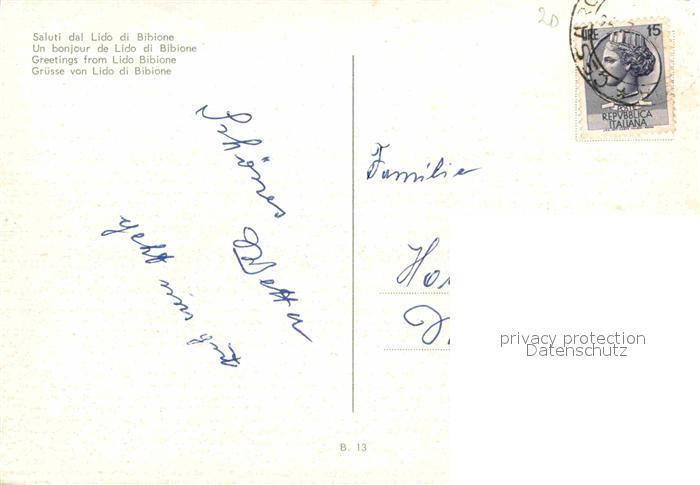 Saluti dal Lido di Bibione
Un bonjour de Lido di Bibione
Greetings from Lido Bibione
Grüsse von Lido di Bibione
20
LIRE 15
POSTE
REPVBBLICA
ITALIANA
Schönes
Wetter
geht uns
gut
Familie
Ho
privacy protection
Datenschutz
B. 13